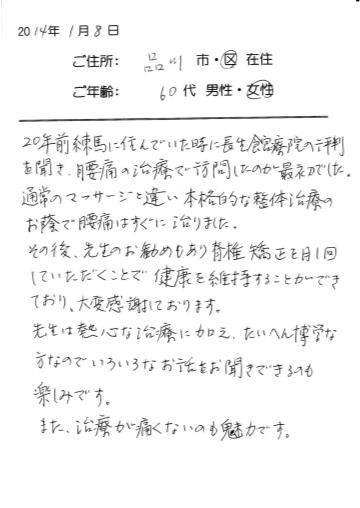 2014年 1月 8日
ご住所: 品川 市・区 在住
ご年齢: 60代 男性・女性
20年前練馬に住んでいた時に長生館療院の評判
を聞き、腰痛の治療で訪問したのが最初でした。
通常のマッサージと違い本格的な整体治療の
お蔭で腰痛はすぐに治りました。
その後、先生のお勧めもあり脊椎矯正を月1回
していただくことで健康を維持することができ
ており、大変感謝しております。
先生は熱心な治療に加え、たいへん博学な
方なのでいろいろなお話をお聞きできるのも
楽しみです。
また、治療が痛くないのも魅力です。